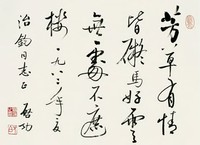 芳草有情
皆碍馬好雲
無處不遮
樓一九八六年夏
治鈞同志正 啟功